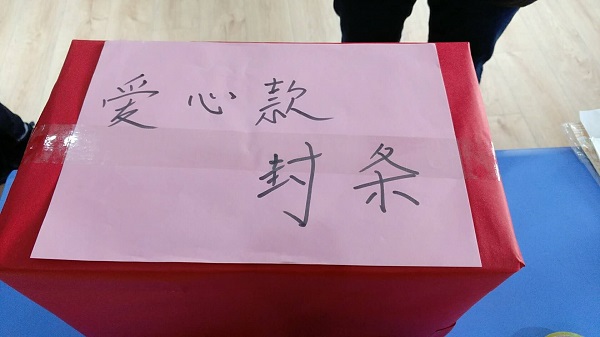 爱心款
封条